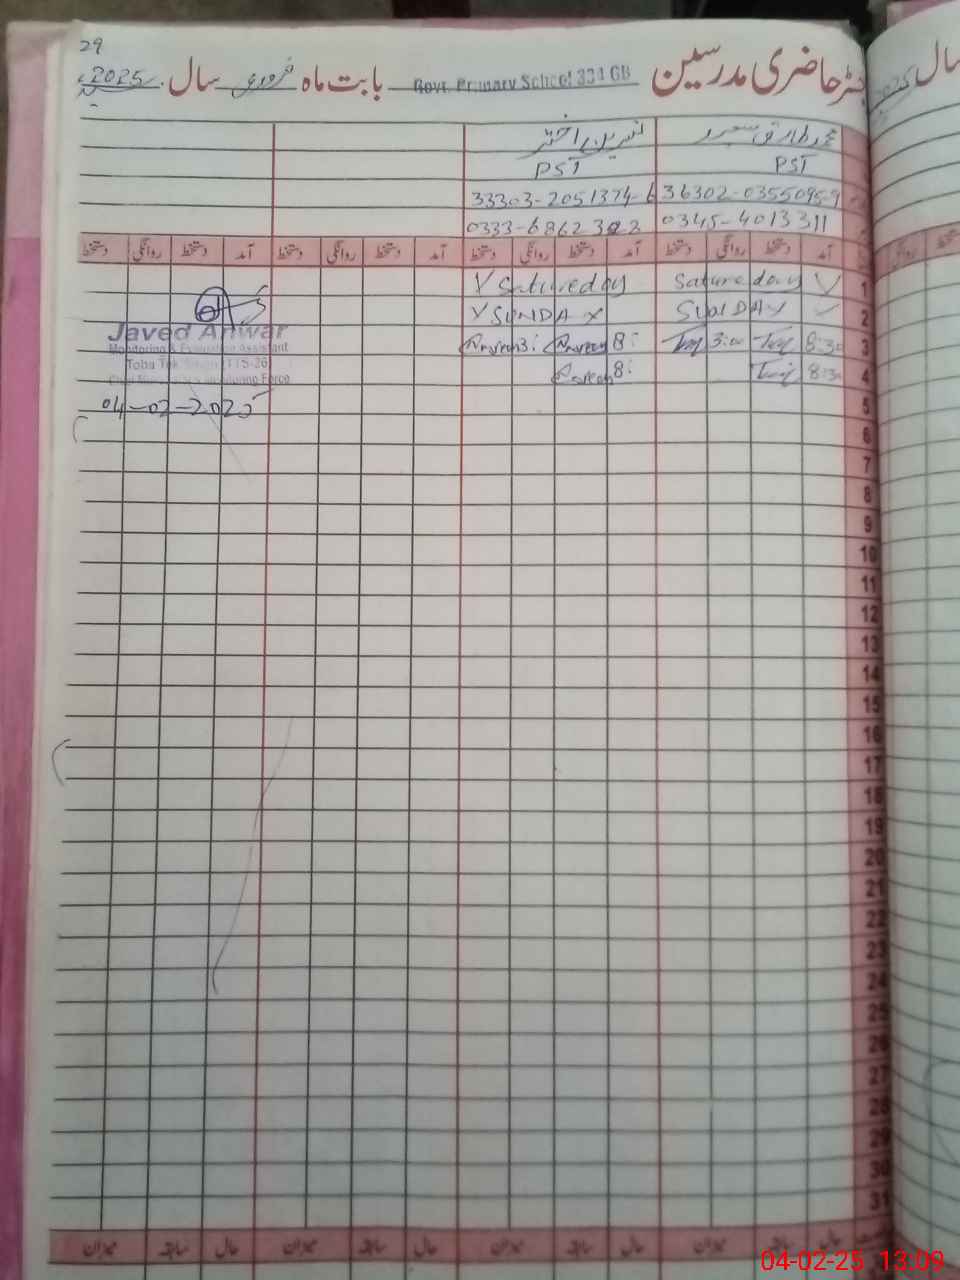 29
رجسٹر حاضری مدرسین Govt. Primary School 331 GB بابت ماہ فروری سال 2025
محمد طارق سعید نسرین اختر
PST PST
36302-0355095-9 33303-2051374-6
0345-4013311 0333-6862
آمد دستخط روانگی دستخط آمد دستخط روانگی دستخط آمد دستخط روانگی دستخط آمد دستخط روانگی دستخط
1 Satureday Satureday
2 SUNDAY SUNDAY
3 8:30 3:00 8: 3:
4 8:30 8:
Javed Anwar
Monitoring & Evaluation Assistant
Toba Tek Singh (TTS-26)
Chief Minister's Monitoring Force
04-02-2025
5
6
7
8
9
10
11
12
13
14
15
16
17
18
19
20
21
22
23
24
25
26
27
28
29
30
31
حال سابقہ میزان حال سابقہ میزان حال سابقہ میزان حال سابقہ میزان
04-02-25 13:09
سال 2025